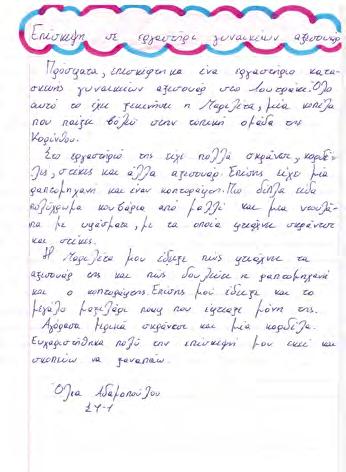 Επίσκεψη σε εργαστήρι γυναικείων αξεσουάρ
Πρόσφατα, επισκέφτηκα ένα εργαστήριο κατα-
σκευής γυναικείων αξεσουάρ στο Λουτράκι. Όλο
αυτό το έχει ξεκινήσει η Μαριλέτα, μία κοπέλα
που παίζει βόλεϋ στην τοπική ομάδα της
Κορίνθου.
Στο εργαστήριό της είχε πολλά σκράντσι, κορδέ-
λες, στέκες και άλλα αξεσουάρ. Επίσης είχε μία
ραπτομηχανή και έναν κοπτοράπτη. Πιο δίπλα είδα
πολύχρωμα κουβάρια από μαλλί και μια ντουλά-
πα με υφάσματα, με τα οποία φτιάχνει σκράντσι
και στέκες.
Η Μαριλέτα μου έδειξε πώς φτιάχνει τα
αξεσουάρ της και πώς δουλεύει η ραπτομηχανή
και ο κοπτοράπτης. Επίσης μού έδειξε και το
μεγάλο μαξιλάρι πουφ που έφτιαξε μόνη της.
Αγόρασα μερικά σκράντσι και μία κορδέλα.
Ευχαριστήθηκα πολύ την επίσκεψή μου εκεί και
σκοπεύω να ξαναπάω.
Όλια Αδαμοπούλου
Σ4-1